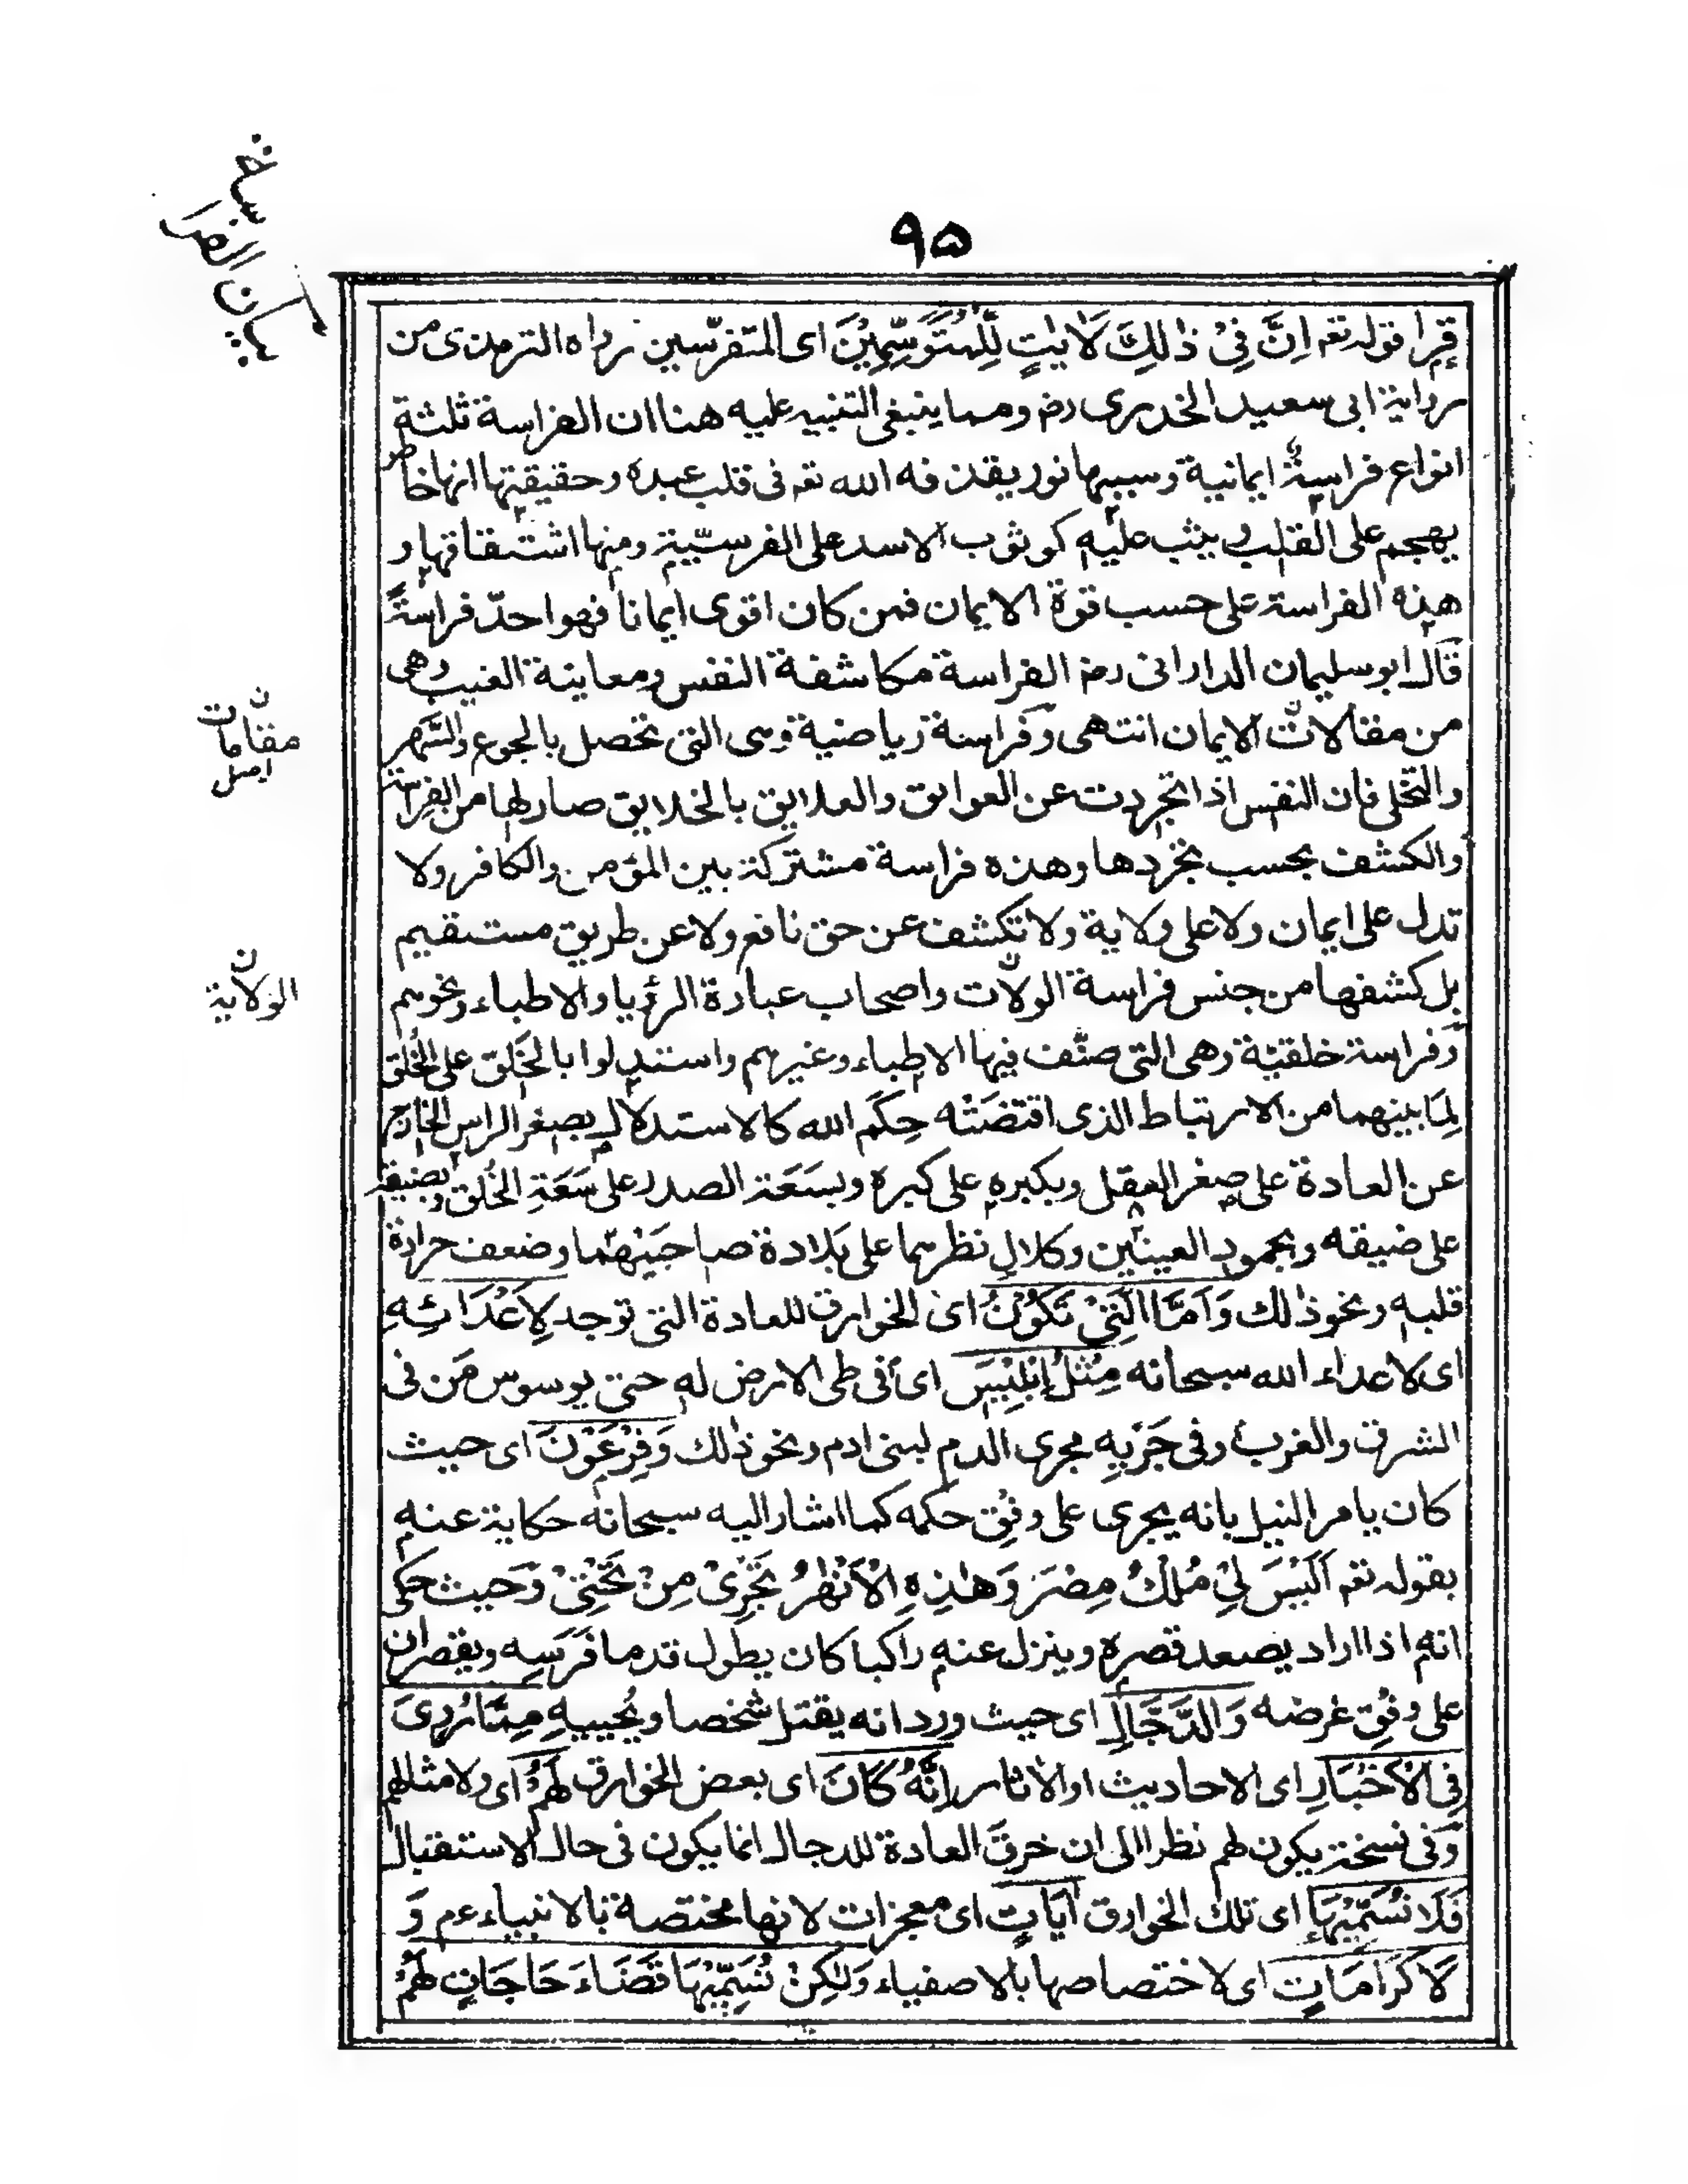 بيان الفراسة
۹۵
قرا قوله تعہ اِنَّ فِىْ ذٰلِكَ لَاٰيٰتٍ لِّلْمُتَوَسِّمِيْنَ اى المتفرّسين رواه الترمذى من
رواية ابى سعيد الخدرى رضہ ومما ينبغى التنبيه عليه هنا ان الفراسة ثلثة
انواع فراسةٌ ايمانية وسببها نور يقذفه الله تعہ فى قلب عبده وحقيقتها انها خاطر
يهجم على القلب و يثب عليه كوثوب الاسد على الفريسة ومنها اشتقاقها و
هذه الفراسة على حسب قوة الايمان فمن كان اقوى ايمانا فهو احدّ فراسةً
قال ابو سليمان الدارانى رضہ الفراسة مكاشفة النفس ومعاينة الغيب وهى
من مقالات الايمان انتهى وَفراسة رياضية وهى التى تحصل بالجوع والسّهر
والتخلى فان النفس اذا تجردت عن العوائق والعلايق بالخلايق صار لها من الفراسة
والكشف بحسب تجرّدها وهذه فراسة مشتركة بين المؤمن والكافر ولا
تدل على ايمان ولا على ولاية ولا تكشف عن حق نافع ولا عن طريق مستقيم
بل كشفها من جنس فراسة الولات واصحاب عبارة الرؤيا والاطباء ونحوهم
وَفراسة خلقيّة وهى التى صنّف فيها الاطباء وغيرهم واستدلوا بالخَلق على الخُلق
لِمَا بينهما من الارتباط الذى اقتضَتْه حِكَم الله كالاستدلال بصغر الراس الخارج
عن العادة على صغر العقل وبكبره على كبره وبسَعَة الصدر على سَعَةِ الخُلق وبضيقه
على ضيقه وبجمود العينين وكلال نظرهما على بَلادة صاحبَيْهما وضعف حرارة
قلبه ونحو ذٰلك وَاَمَّا الَّتِىْ تَكُوْنُ اى الخوارق للعادة التى توجد لِاَعْدَائِهٖ
اى لاعداء الله سبحانه مِثْلُ اِبْلِيْسَ اى فى طى الارض له حتى يوسوس مَن فى
الشرق والغرب وفى جَرْيِهٖ مجرى الدم لبنى ادم ونحو ذٰلك وَفِرْعَوْنَ اى حيث
كان يامر النيل بانه يجرى على وفْق حكمه كما اشار اليه سبحانه حكاية عنه
بقوله تعہ اَلَيْسَ لِىْ مُلْكُ مِصْرَ وَهٰذِهِ الْاَنْهٰرُ تَجْرِىْ مِنْ تَحْتِىْ وَحيث حكى
انه اذا اراد يصعد قصره وينزل عنه راكبا كان يطول قدما فَرَسِه ويقصران
على وفْق غرضه وَالدَّجَّالِ اى حيث ورد انه يقتل شخصا ويُحييه مِمَّا رُوِىَ
فِى الْاَخْبَارِ اى الاحاديث او الاٰثار اِنَّهٗ كَانَ اى بعض الخوارق لَهُمْ اى ولامثالهم
وَفى نسخة يكون لهم نظرا الى ان خرقَ العادة للدجال انما يكون فى حال الاستقبال
فَلَا نُسَمِّيْهَا اى تلك الخوارق اٰيَاتٍ اى معجزات لانها مختصة بالانبياء عم وَ
لَا كَرَامَاتٍ اى لاختصاصها بالاصفياء وَلٰكِنْ نُسَمِّيْهَا قَضَاءَ حَاجَاتٍ لَهُمْ
ن
مقامات
اصل
ن
الولاية